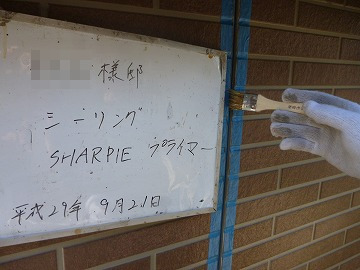 様邸
シーリング
SHARPIE プライマー
平成29年 9月21日